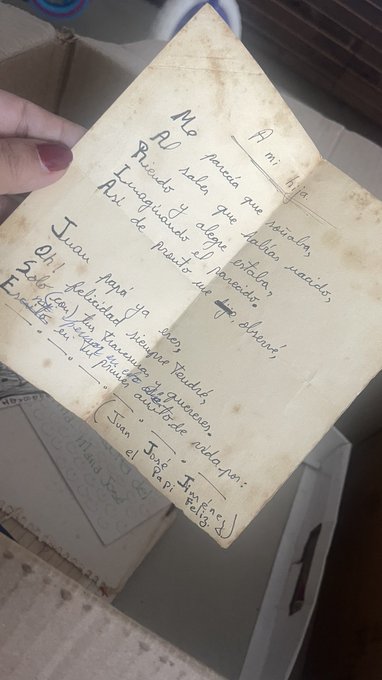 A mi hija
Me parecía que soñaba,
Al saber que habías nacido,
Riendo y alegre estaba,
Imaginando el parecido.
Así de pronto me observé,
Juan papá ya eres,
Oh! felicidad siempre tendré,
Solo (con) tus travesuras y quereres.
Escrito en tu primer de vida por:
(Juan José Jiménez)
el Papi Feliz.
María José